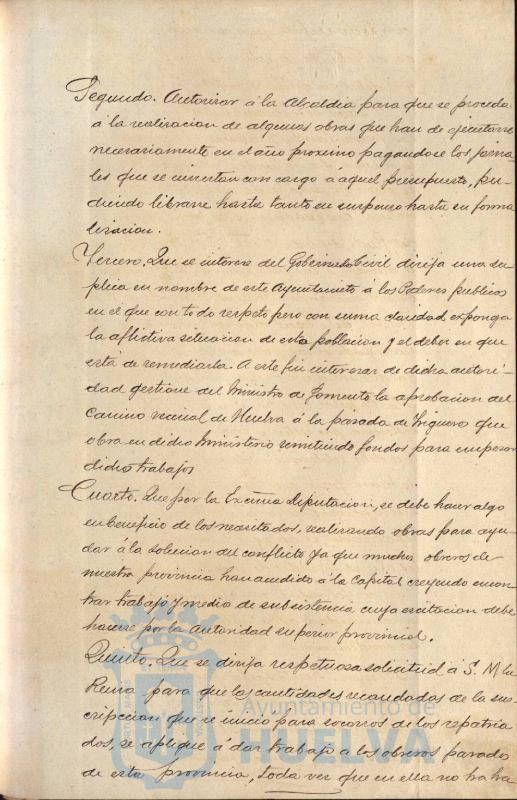 Segundo. Autorizar á la Alcaldia para que se proceda
á la realizacion de algunas obras que han de ejecutarse
necesariamente en el año proximo pagandose los jorna-
les que se inviertan con cargo á aquel presupuesto, pu-
diendo librarse hasta tanto en suspenso hasta su forma
lizacion.
Tercero. Que se interese del Gobierno Civil dirija una su-
plica en nombre de este Ayuntamiento á los Poderes publicos
en el que con todo respeto pero con suma claridad exponga
la aflictiva situacion de esta poblacion y el deber en que
está de remediarla. A este fin interesar de dicha autori-
dad gestione del Ministro de Fomento la aprobacion del
Camino vecinal de Huelva á la pasada de Trigueros que
obra en dicho Ministerio remitiendo fondos para empezar
dichos trabajos
Cuarto. Que por la Excma Diputacion, se debe hacer algo
en beneficio de los necesitados, realizando obras para ayu-
dar á la solucion del conflicto ya que muchos obreros de
nuestra provincia han acudido á la Capital creyendo encon
trar trabajo y medio de subsistencia cuya escitacion debe
hacerse por la Autoridad superior provincial.
Quinto. Que se dirija respetuosa solicitud á S. M la
Reina para que las cantidades recaudadas de la sus-
cripcion que se inicio para socorros de los repatria
dos, se aplique á dar trabajo a los obreros parados
de esta provincia, toda vez que en ella no ha ha
Ayuntamiento de
HUELVA